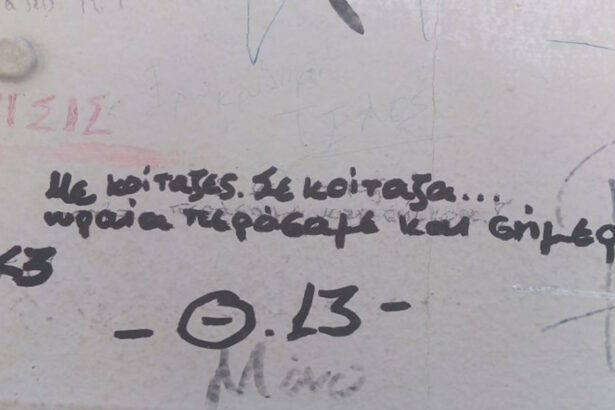 ΙΣΙΣ
ΤΕΛΟΣ
Με κοίταξες. Σε κοίταξα...
ωραία περάσαμε και σήμερ
<3
- Θ.13 -
Μόνο